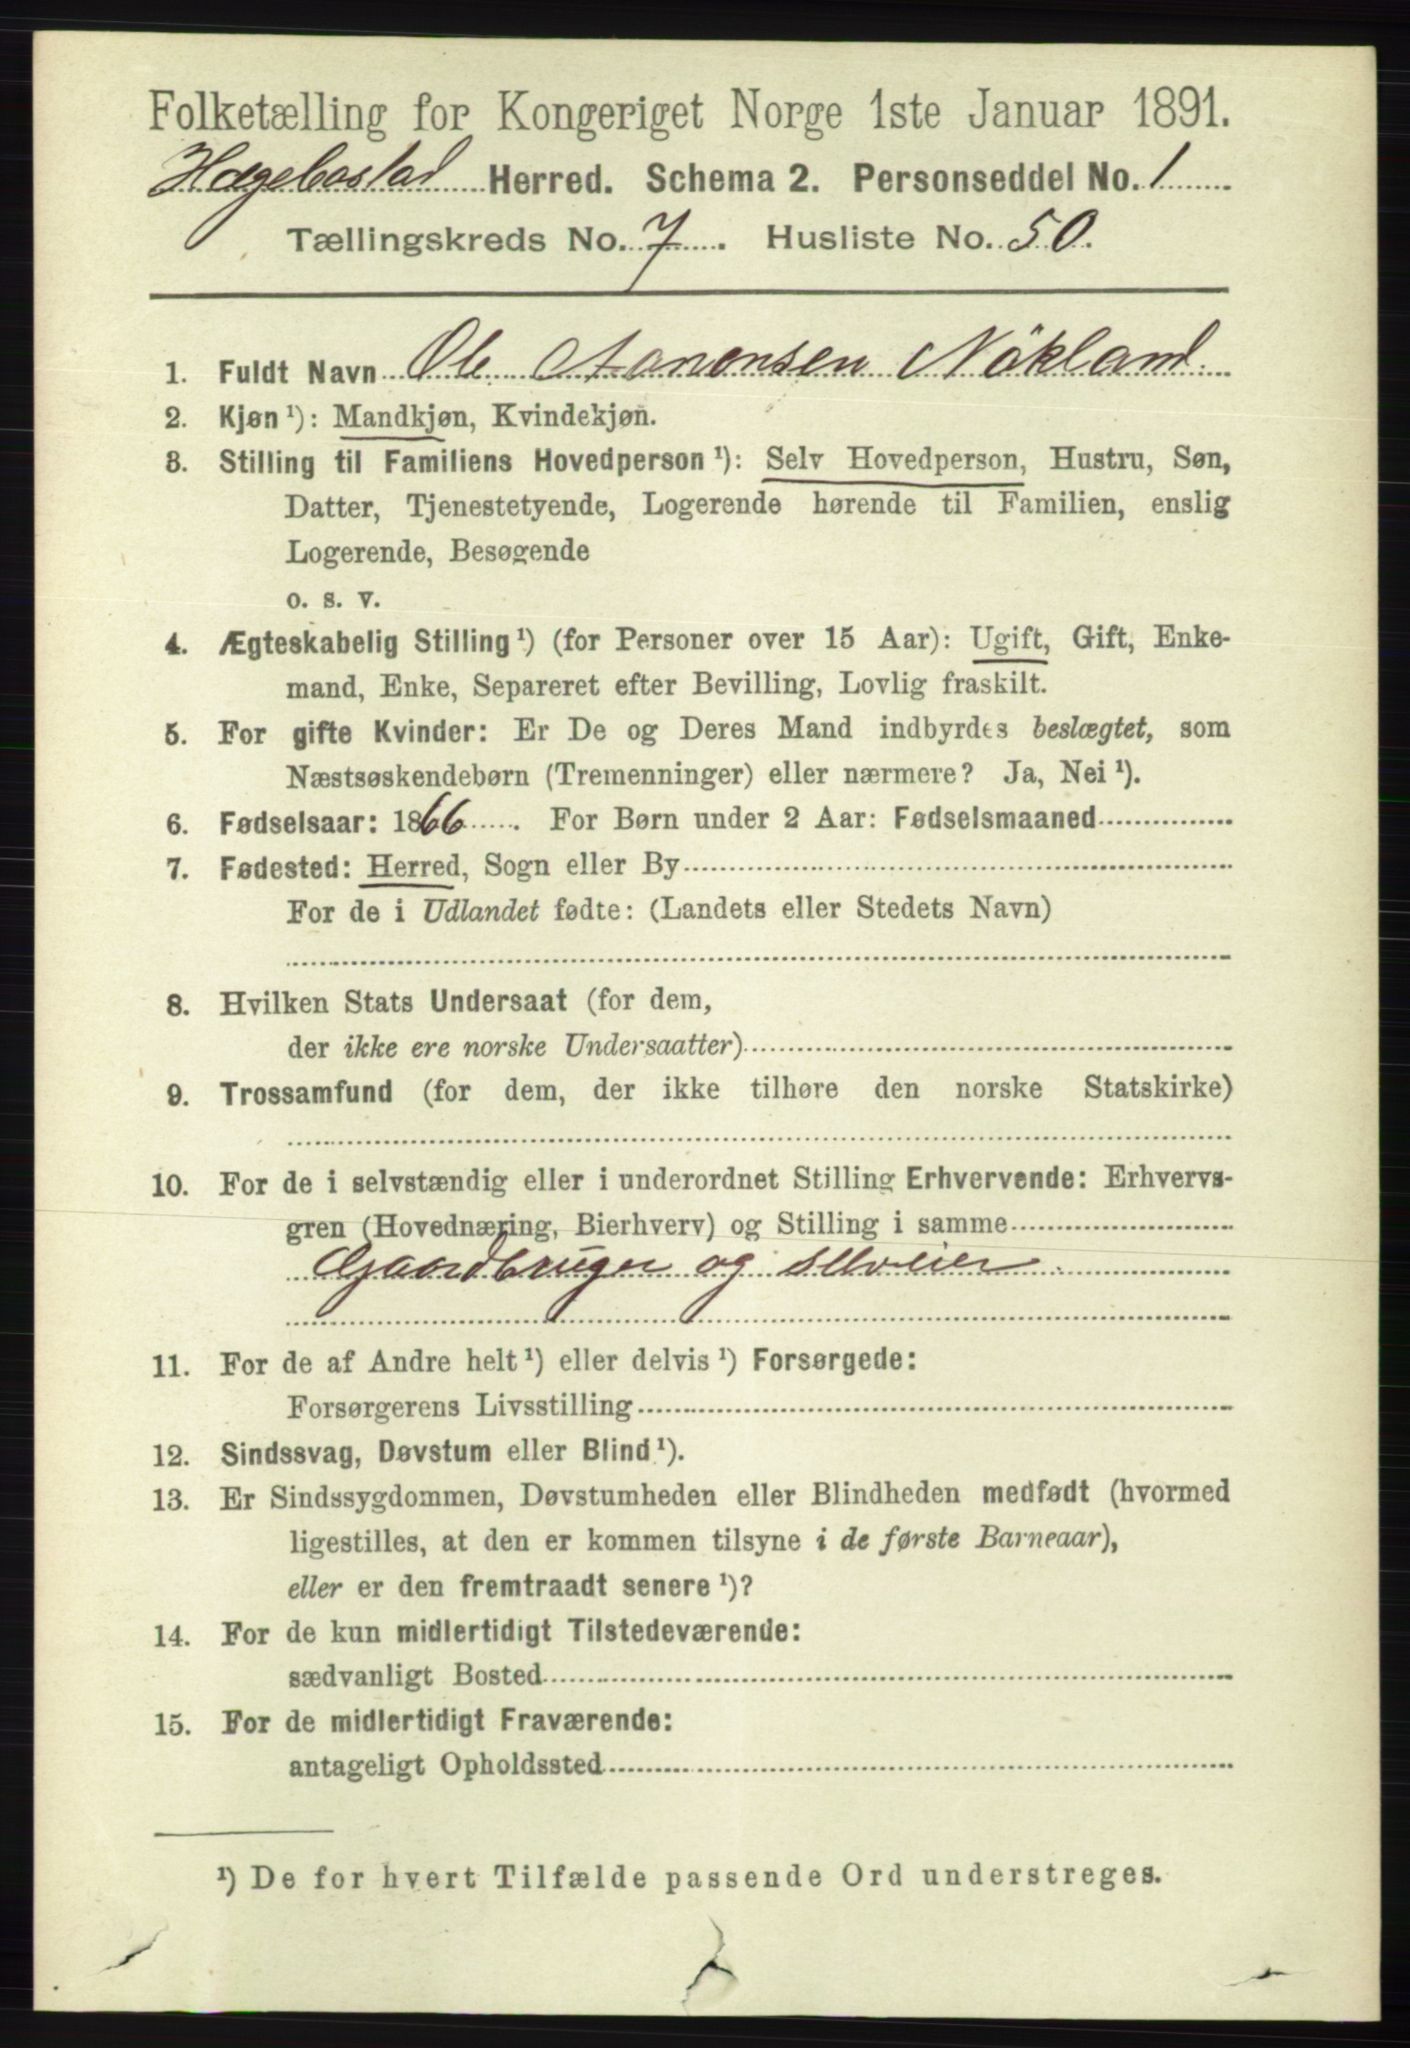 Folketælling for Kongeriget Norge 1ste Januar 1891.
Hægebostad Herred. Schema 2. Personseddel No. 1
Tællingskreds No. 7. Husliste No. 50.
1. Fuldt Navn Ole Aanensen Nökland.
2. Kjøn ¹): Mandkjøn, Kvindekjøn.
3. Stilling til Familiens Hovedperson ¹): Selv Hovedperson, Hustru, Søn,
Datter, Tjenestetyende, Logerende hørende til Familien, enslig
Logerende, Besøgende
o. s. v.
4. Ægteskabelig Stilling ¹) (for Personer over 15 Aar): Ugift, Gift, Enke-
mand, Enke, Separeret efter Bevilling, Lovlig fraskilt.
5. For gifte Kvinder: Er De og Deres Mand indbyrdes beslægtet, som
Næstsøskendebørn (Tremenninger) eller nærmere? Ja, Nei ¹).
6. Fødselsaar: 1866. For Børn under 2 Aar: Fødselsmaaned
7. Fødested: Herred, Sogn eller By
For de i Udlandet fødte: (Landets eller Stedets Navn)
8. Hvilken Stats Undersaat (for dem,
der ikke ere norske Undersaatter)
9. Trossamfund (for dem, der ikke tilhøre den norske Statskirke)
10. For de i selvstændig eller i underordnet Stilling Erhvervende: Erhvervs-
gren (Hovednæring, Bierhverv) og Stilling i samme
Gaardbruger og selveier.
11. For de af Andre helt ¹) eller delvis ¹) Forsørgede:
Forsørgerens Livsstilling
12. Sindssvag, Døvstum eller Blind ¹).
13. Er Sindssygdommen, Døvstumheden eller Blindheden medfødt (hvormed
ligestilles, at den er kommen tilsyne i de første Barneaar),
eller er den fremtraadt senere ¹)?
14. For de kun midlertidigt Tilstedeværende:
sædvanligt Bosted
15. For de midlertidigt Fraværende:
antageligt Opholdssted
¹) De for hvert Tilfælde passende Ord understreges.